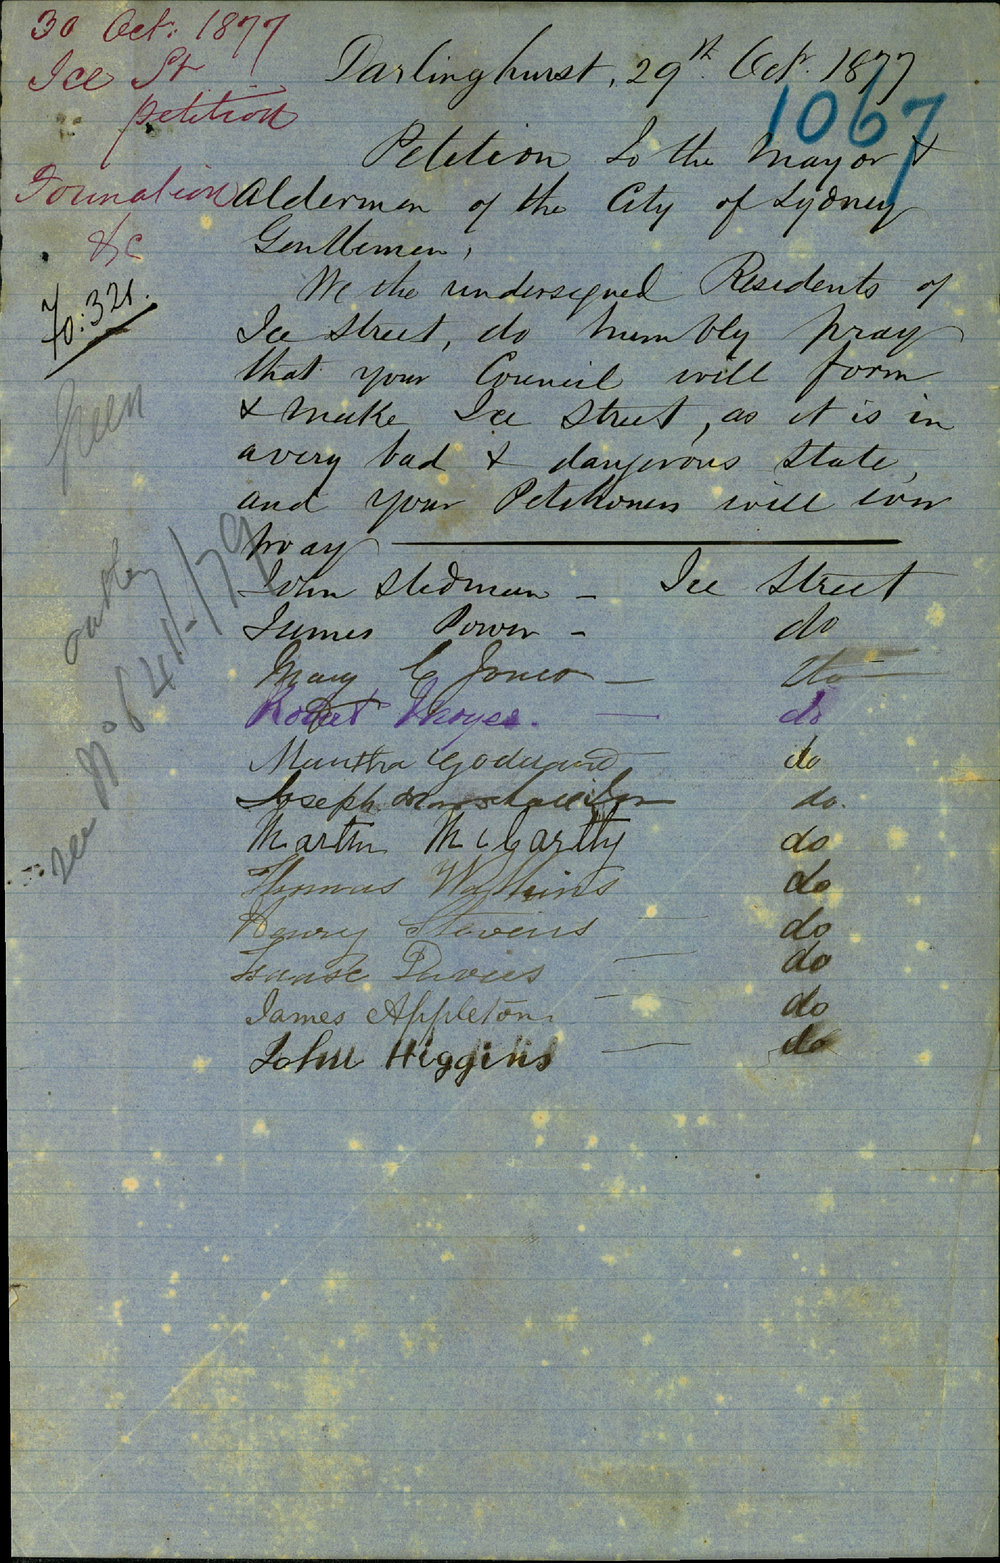 30 Oct. 1877
Ice St
petition
Formation
&c
Fo: 321.
Darlinghurst, 29th Oct. 1877
1067
Petition To the Mayor &
Aldermen of the City of Sydney
Gentlemen,
We the undersigned Residents of
Ice Street, do humbly pray
that your Council will form
& make Ice Street, as it is in
a very bad & dangerous state,
and your Petitioners will ever
pray
John Stedman - Ice Street
James Power - do
Mary C Jones - do
Robert - do
Martha Goddard do
Joseph Marshall do.
Martin McCartty do
Thomas Watkins do
Henry Stevens do
Isaac Davies do
James Appleton. do
John Higgins do
Green
see No 641-/79